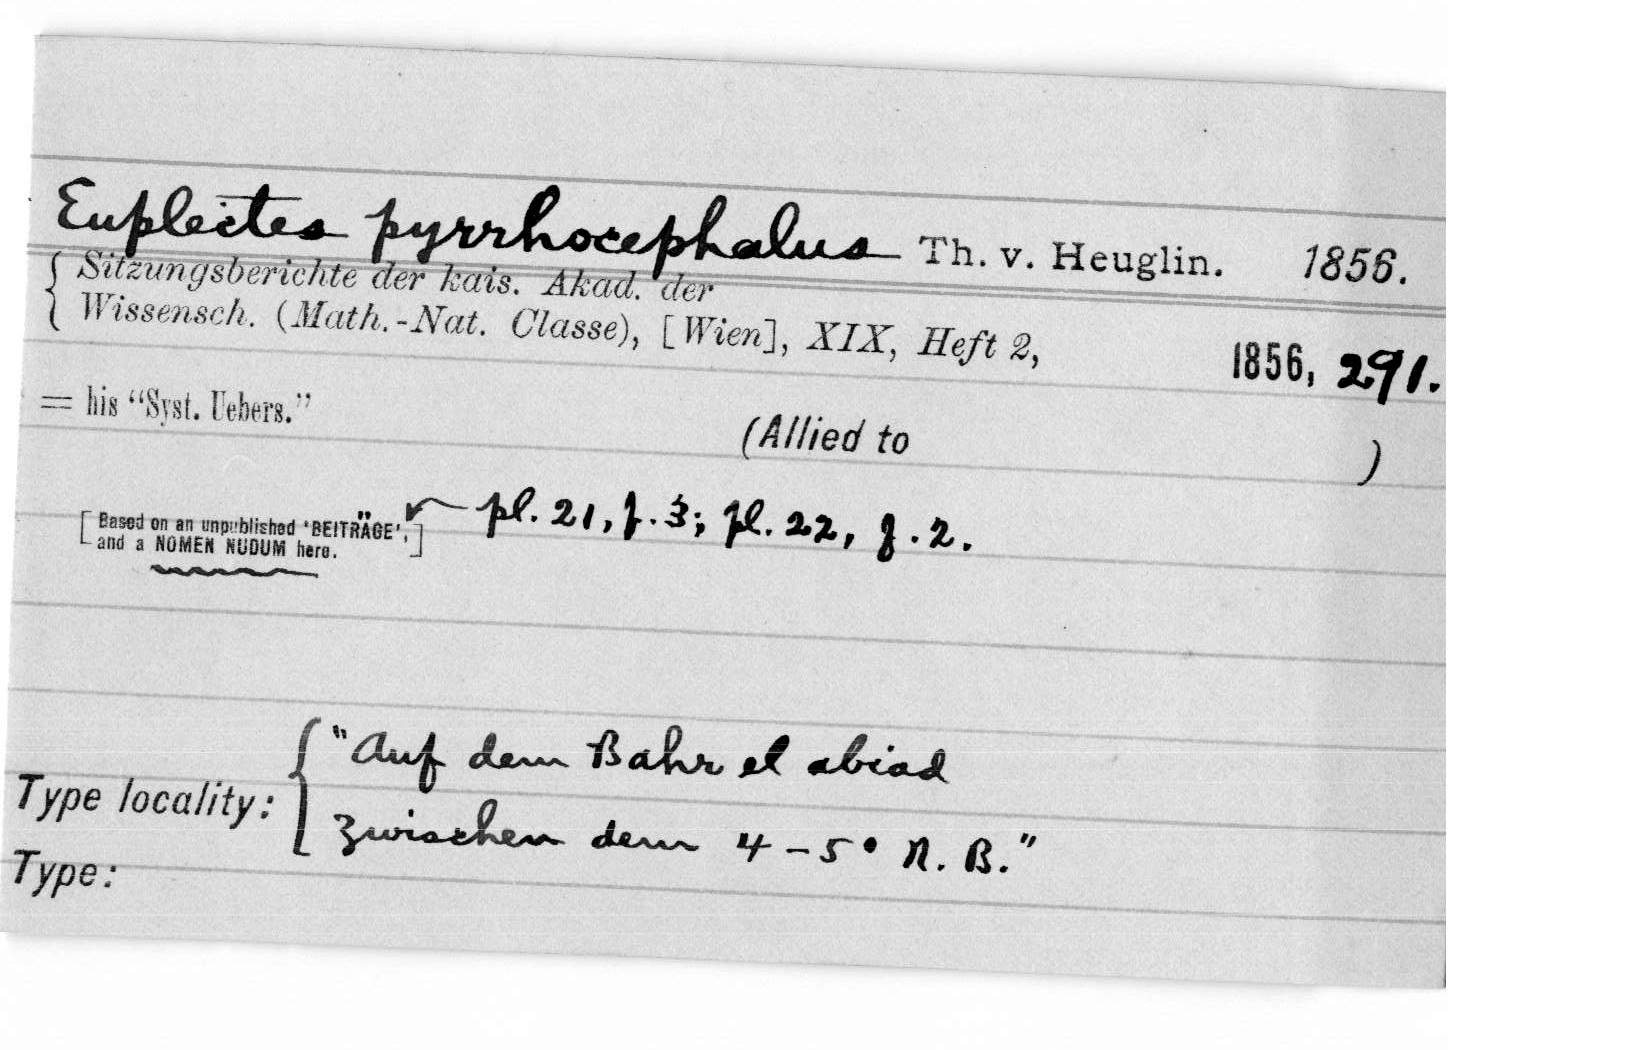 Euplectes pyrrhocephalus Th. v. Heuglin. 1856.
Sitzungsberichte der kais. Akad. der
Wissensch. (Math.-Nat. Classe), [Wien], XIX, Heft 2, 1856, 291.
= his “Syst. Uebers.”
(Allied to )
[Based on an unpublished ‘BEITRÄGE’, pl. 21, f. 3; pl. 22, f. 2.
and a NOMEN NUDUM here.]
"Auf dem Bahr el abiad
Type locality:
zwischen dem 4–5° N. B."
Type: